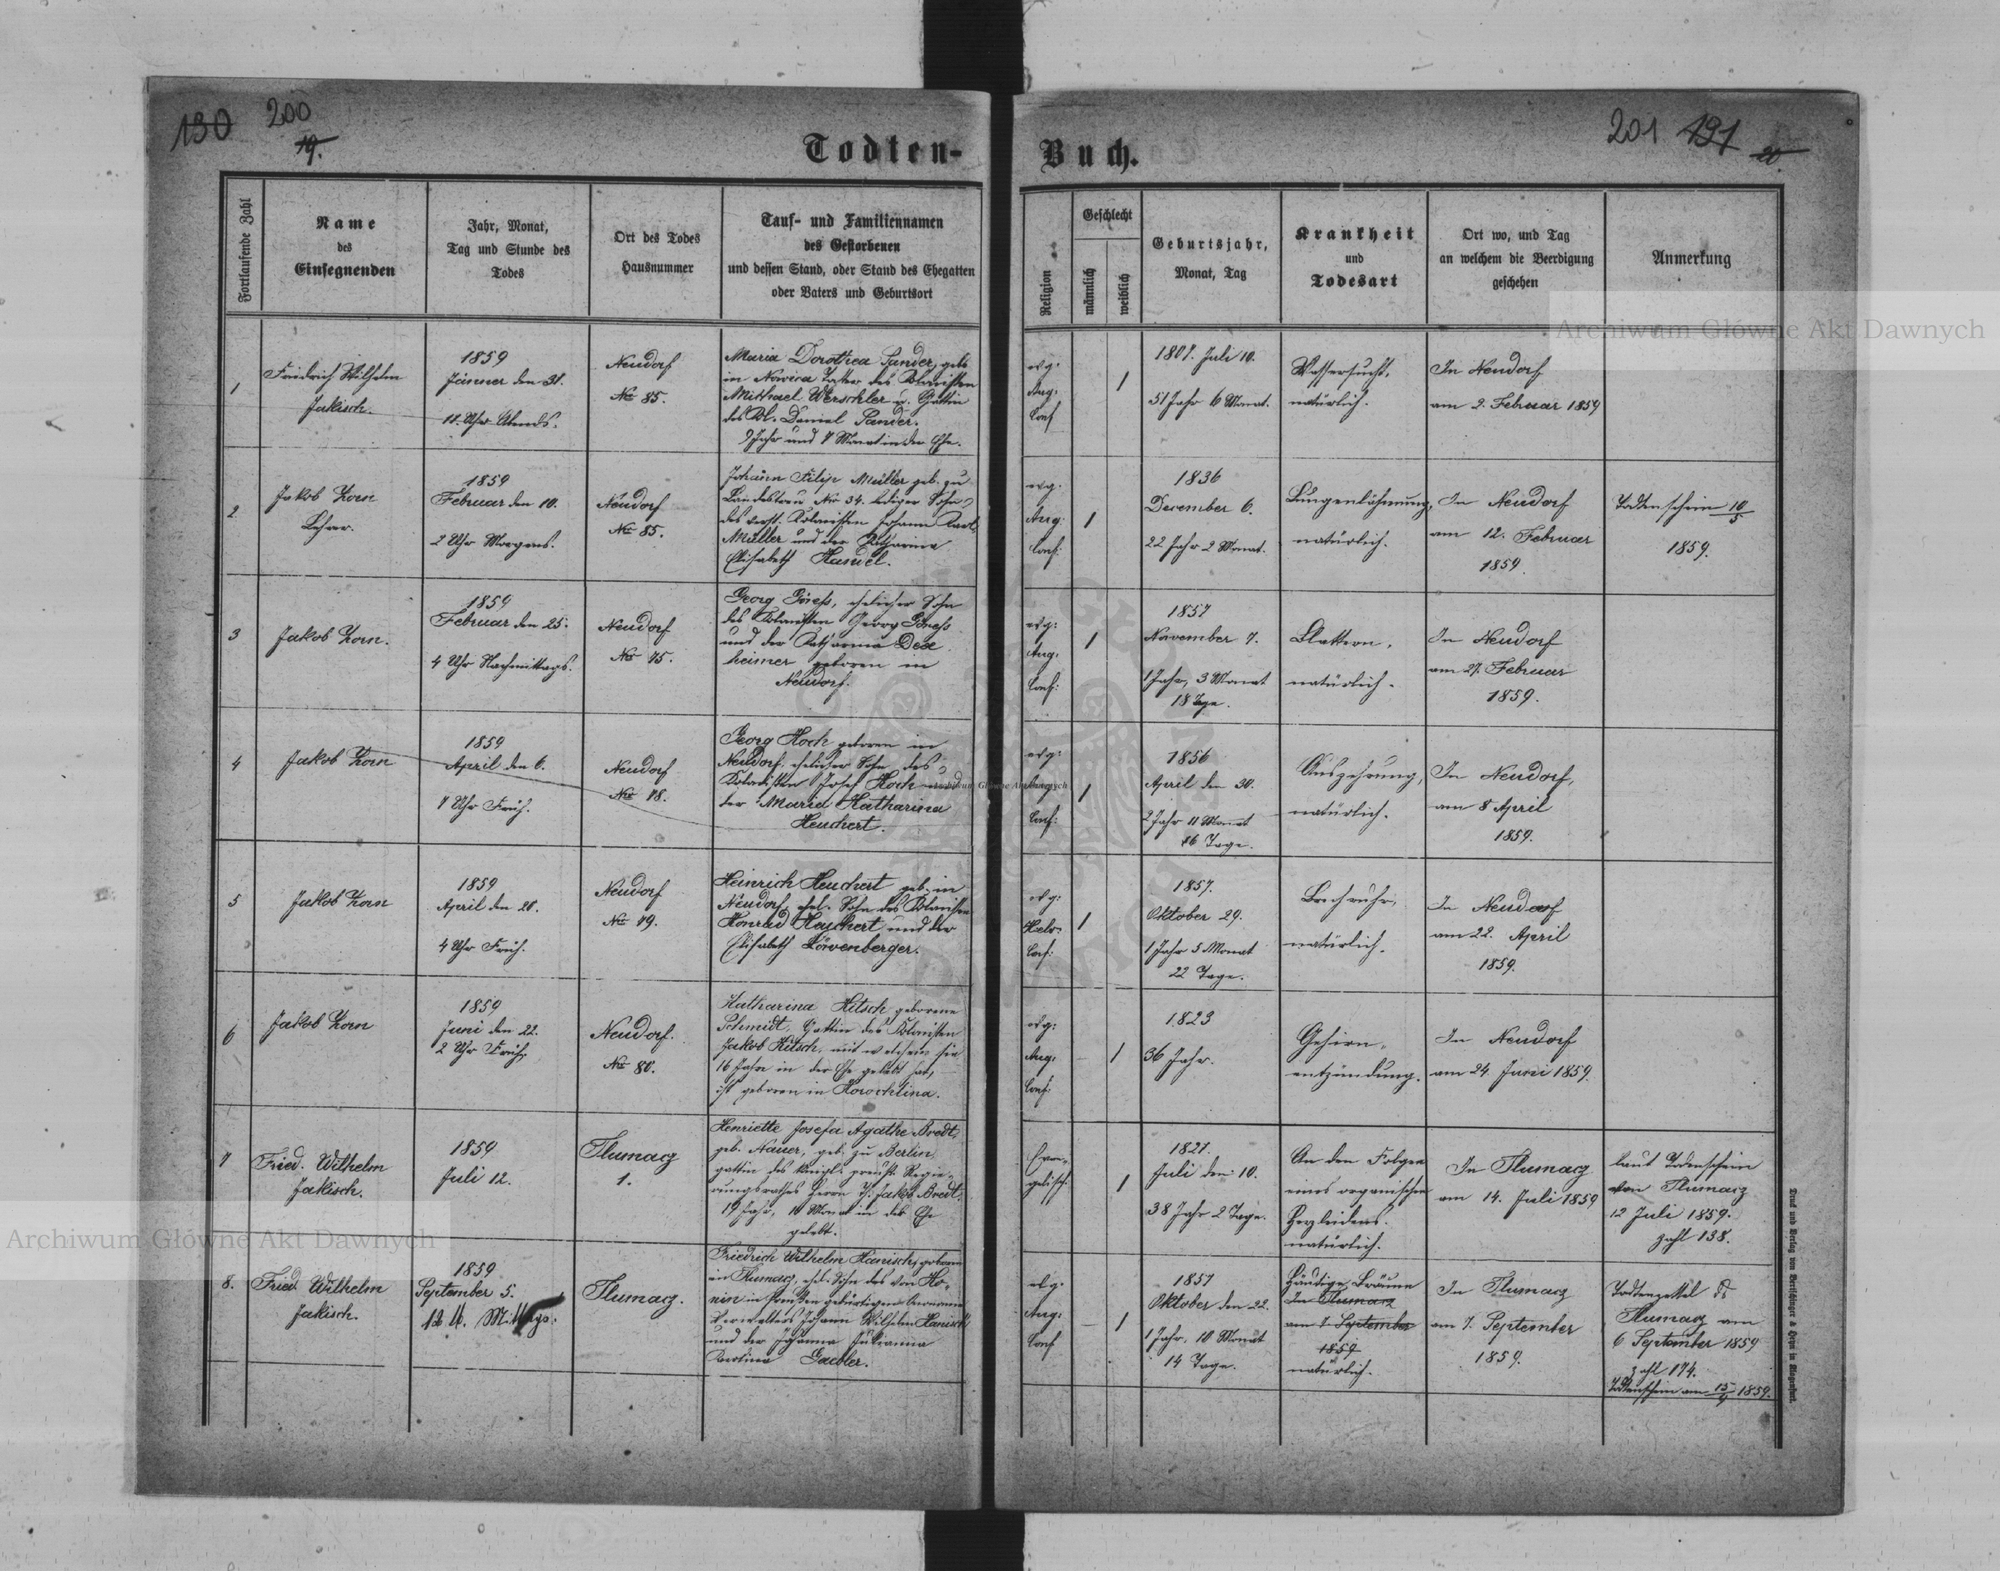 130 200
19.
Todten-
Fortlaufende Zahl
Name
des
Einsegnenden
Jahr, Monat,
Tag und Stunde des
Todes
Ort des Todes
Hausnummer
Tauf- und Familiennamen
des Gestorbenen
und dessen Stand, oder Stand des Ehegatten
oder Vaters und Geburtsort
1
Friedrich Wilhelm
Jakisch.
1859
Jänner den 31.
11. Uhr Abends.
Neudorf
No 85.
Maria Dorothea Sander, geb.
in Nowica Tochter des Kolonisten
Michael Werschler u. Gattin
des Kol. Daniel Sander.
9 Jahr und 7 Monat in der Ehe.
2
Jakob Zorn
Lehrer.
1859
Februar den 10.
2 Uhr Morgens.
Neudorf
No 85.
Johann Filip Müller geb. zu
Landestreu No 34. lediger Sohn
des verst. Kolonisten Johann Karl
Müller und der Katharina
Elisabeth Handel.
3
Jakob Zorn.
1859
Februar den 25.
4 Uhr Nachmittags.
Neudorf
No 75.
Georg ehelicher Sohn
des Kolonisten Georg
und der Katharina
heimer geboren in
Neudorf.
4
Jakob Zorn
1859
April den 6.
7 Uhr Früh.
Neudorf
No 78.
Georg Hoch geboren in
Neudorf, ehelicher Sohn des
Kolonisten Josef Hoch und
der Maria Katharina
Heuchert.
5
Jakob Zorn
1859
April den 20.
4 Uhr Früh.
Neudorf
No 79.
Heinrich Heuchert geb. in
Neudorf, ehel. Sohn des Kolonisten
Konrad Heuchert und der
Elisabeth Löwenberger.
6
Jakob Zorn
1859
Juni den 22.
2 Uhr Früh.
Neudorf.
No 80.
Katharina Hitsch geborene
Schmidt, Gattin des Kolonisten
Jakob Hitsch, mit welchem sie
16 Jahre in der Ehe gelebt hat,
ist geboren in
7
Fried. Wilhelm
Jakisch.
1859
Juli 12.
Tlumacz
1.
Henriette Josefa Agathe Bredt,
geb. Nauer, geb. zu Berlin,
gattin des königl. preuß. Regie-
rungsrathes Herrn Jakob Bredt,
19 Jahr, 10 Monat in der Ehe
gelebt.
8.
Fried. Wilhelm
Jakisch.
1859
September 5.
12 U. Mittags.
Tlumacz.
Friedrich Wilhelm Hanisch, geboren
in Tlumacz, ehel. Sohn des von
in Preußen gebürtigen
Verwalters Johann Wilhelm Hanisch
und der Johanna Julianna
Karolina Gaebler.
Buch.
201 191
20.
Religion
Geschlecht
männlich
weiblich
Geburtsjahr,
Monat, Tag
Krankheit
und
Todesart
Ort wo, und Tag
an welchem die Beerdigung
geschehen
Anmerkung
evg.
Aug.
Conf
1
1807. Juli 10.
51 Jahr 6 Monat.
Wassersucht,
natürlich.
In Neudorf
am 2. Februar 1859
evg.
Aug.
Conf:
1
1836
December 6.
22 Jahr 2 Monat.
Lungenlähmung,
natürlich.
In Neudorf
am 12. Februar
1859.
Todtenschein 10/5
1859.
evg:
Aug.
Conf:
1
1857
November 7.
1 Jahr, 3 Monat
18 Tage.
Blattern,
natürlich.
In Neudorf
am 27. Februar
1859.
evg:
Conf:
1
1856
April den 30.
2 Jahr 11 Monat
Tage.
Auszehrung,
natürlich.
In Neudorf,
am 8 April
1859.
evg:
Helv.
Conf:
1
1857.
Oktober 29.
1 Jahr 5 Monat
22 Tage.
Brechruhr,
natürlich.
In Neudorf
am 22. April
1859.
evg:
Aug.
Conf:
1
1823
36 Jahr.
Gehirn-
entzündung.
In Neudorf
am 24 Juni 1859.
Evan-
gelisch.
1
1821.
Juli den 10.
38 Jahr 2 Tage.
An den Folgen
eines organischen
Herzleidens.
natürlich.
In Tlumacz
am 14. Juli 1859
laut Todenschein
von Tlumacz
12 Juli 1859.
zahl 138.
evg:
Aug:
Conf
1
1857
Oktober den 22.
1 Jahr, 10 Monat
14 Tage.
Häutige Bräune
In Tlumacz
am 7 September
1859
natürlich.
In Tlumacz
am 7. September
1859.
Todtenzettel
Tlumacz vom
6 September 1859
zahl 174.
Todtenschein am 15/9 1859.
Archiwum Główne Akt Dawnych
Archiwum Główne Akt Dawnych
Archiwum Główne Akt Dawnych